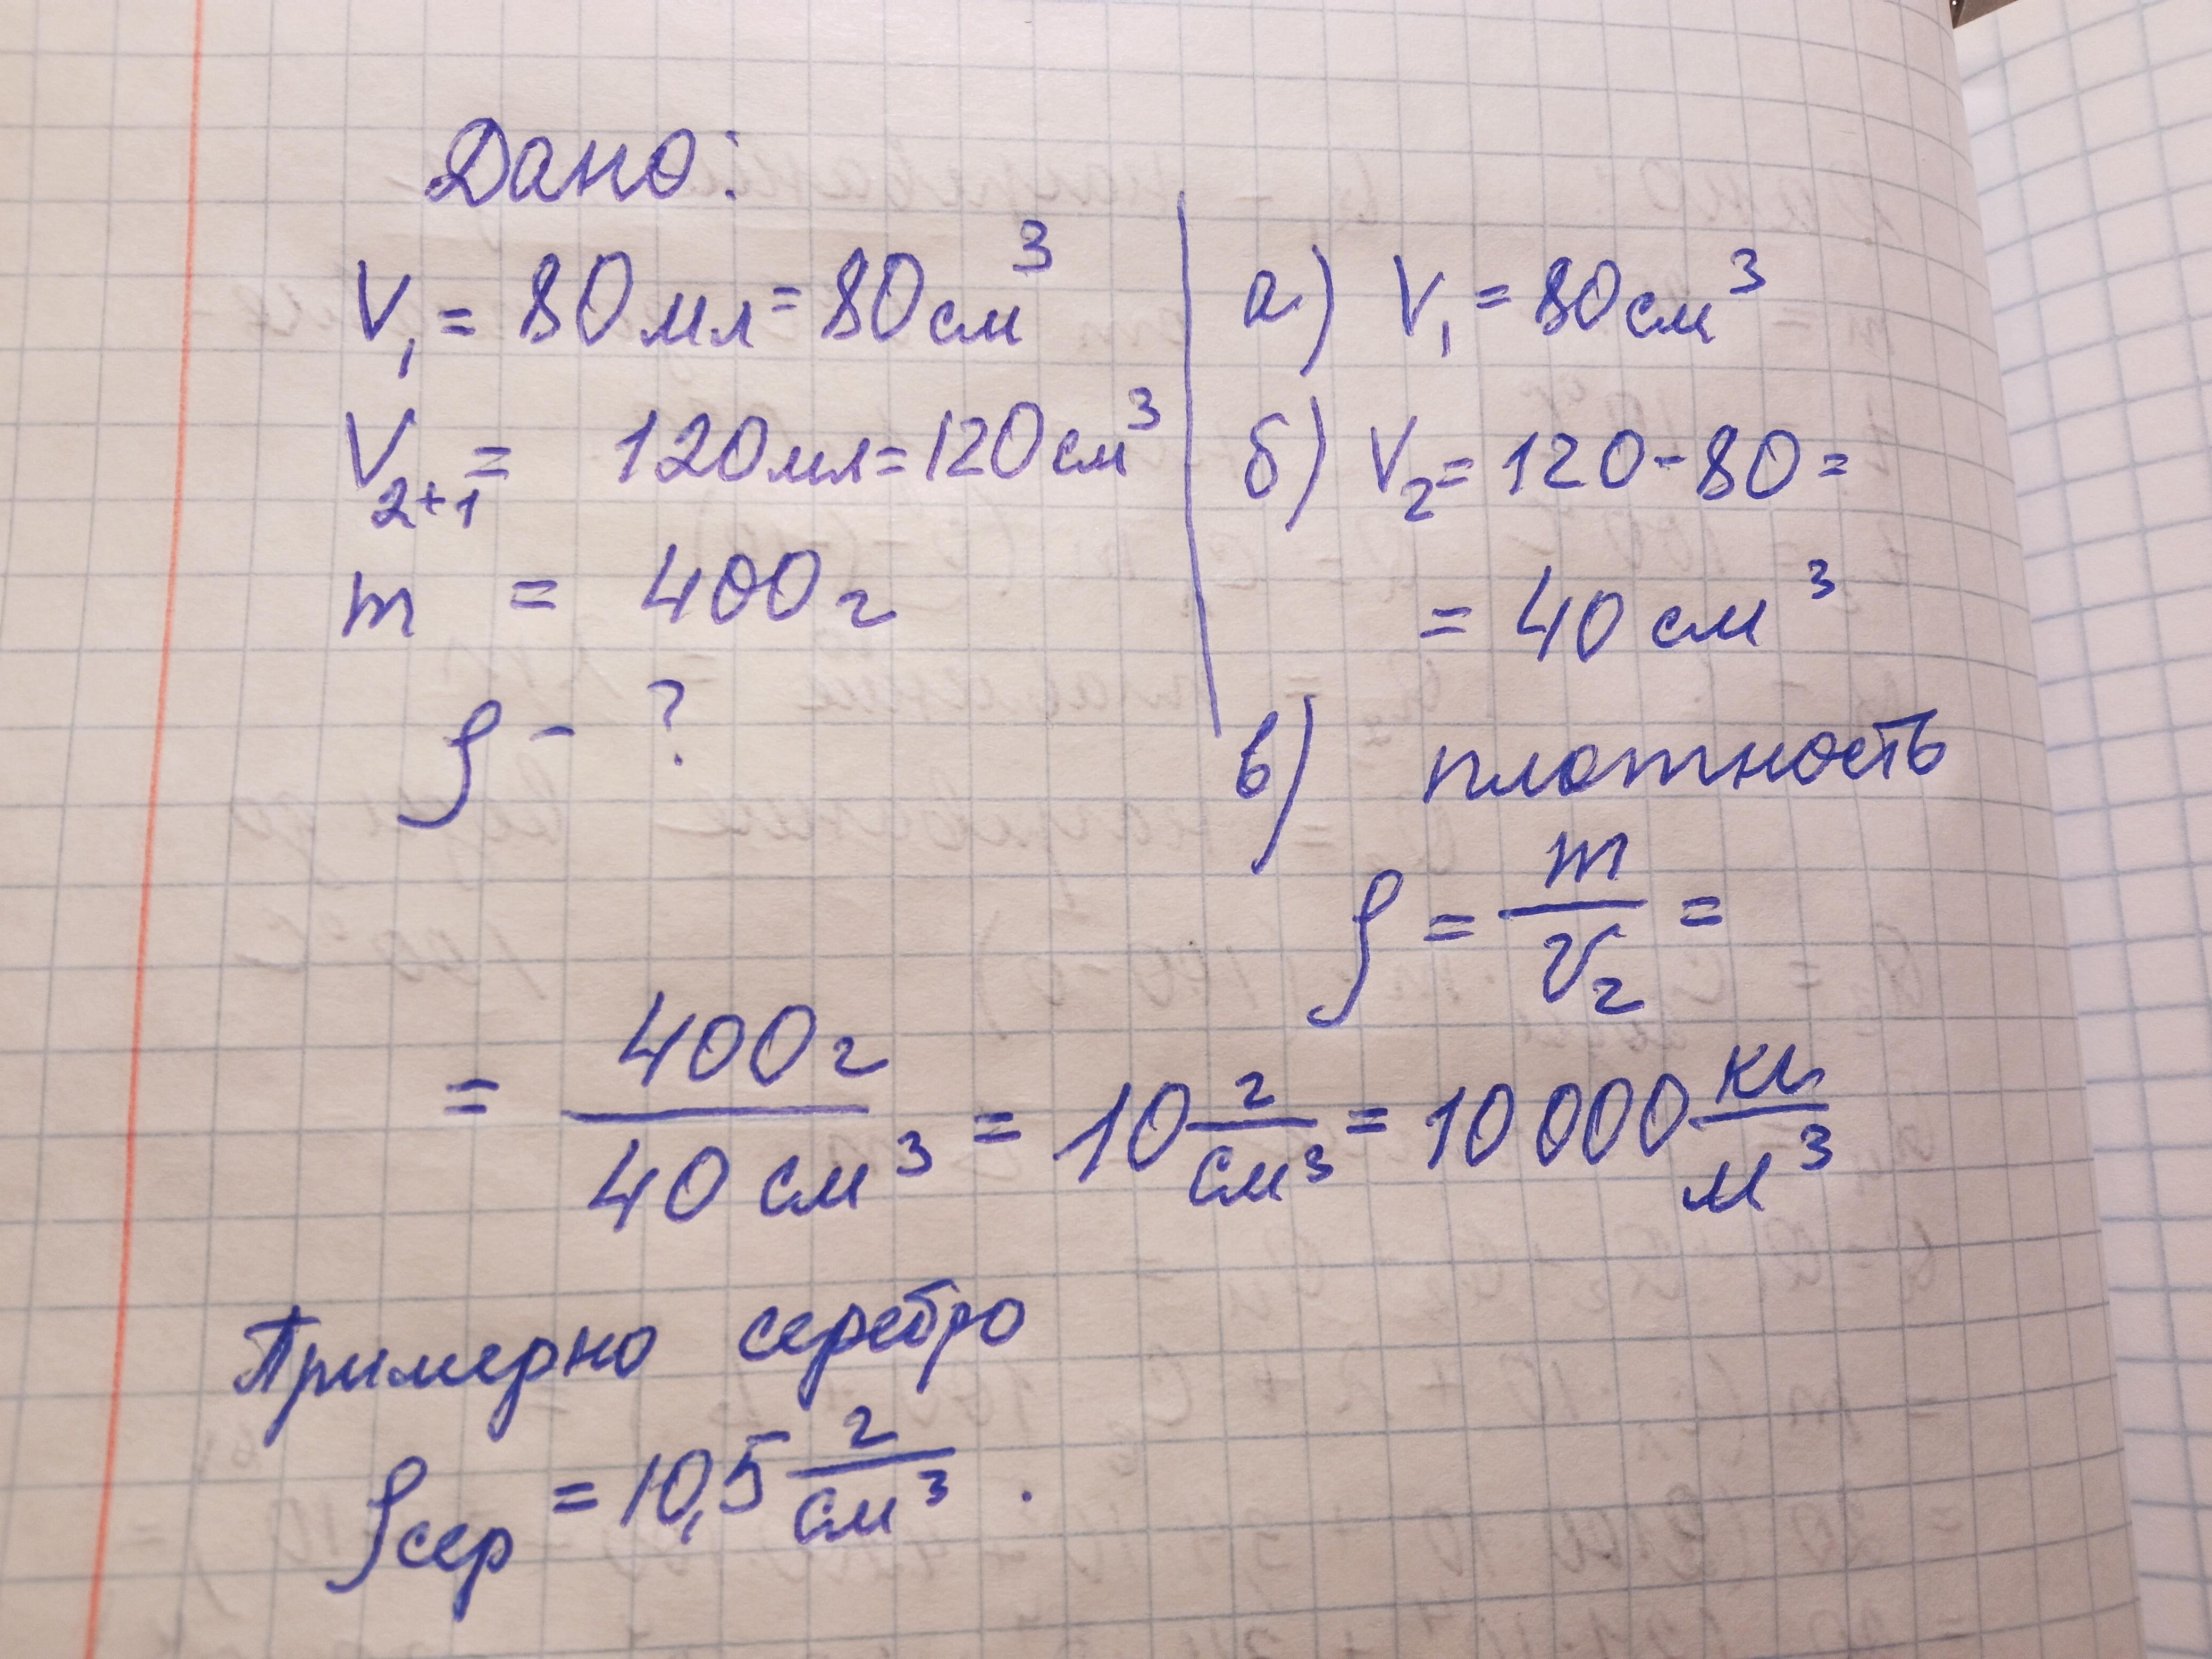 Дано:
V₁ = 80 мл = 80 см³
V₂₊₁ = 120 мл = 120 см³
m = 400 г
ρ - ?
а) V₁ = 80 см³
б) V₂ = 120 - 80 =
= 40 см³
в) плотность
ρ = m/V₂ =
= 400 г/40 см³ = 10 г/см³ = 10 000 кг/м³
Примерно серебро
ρсер = 10,5 г/см³.